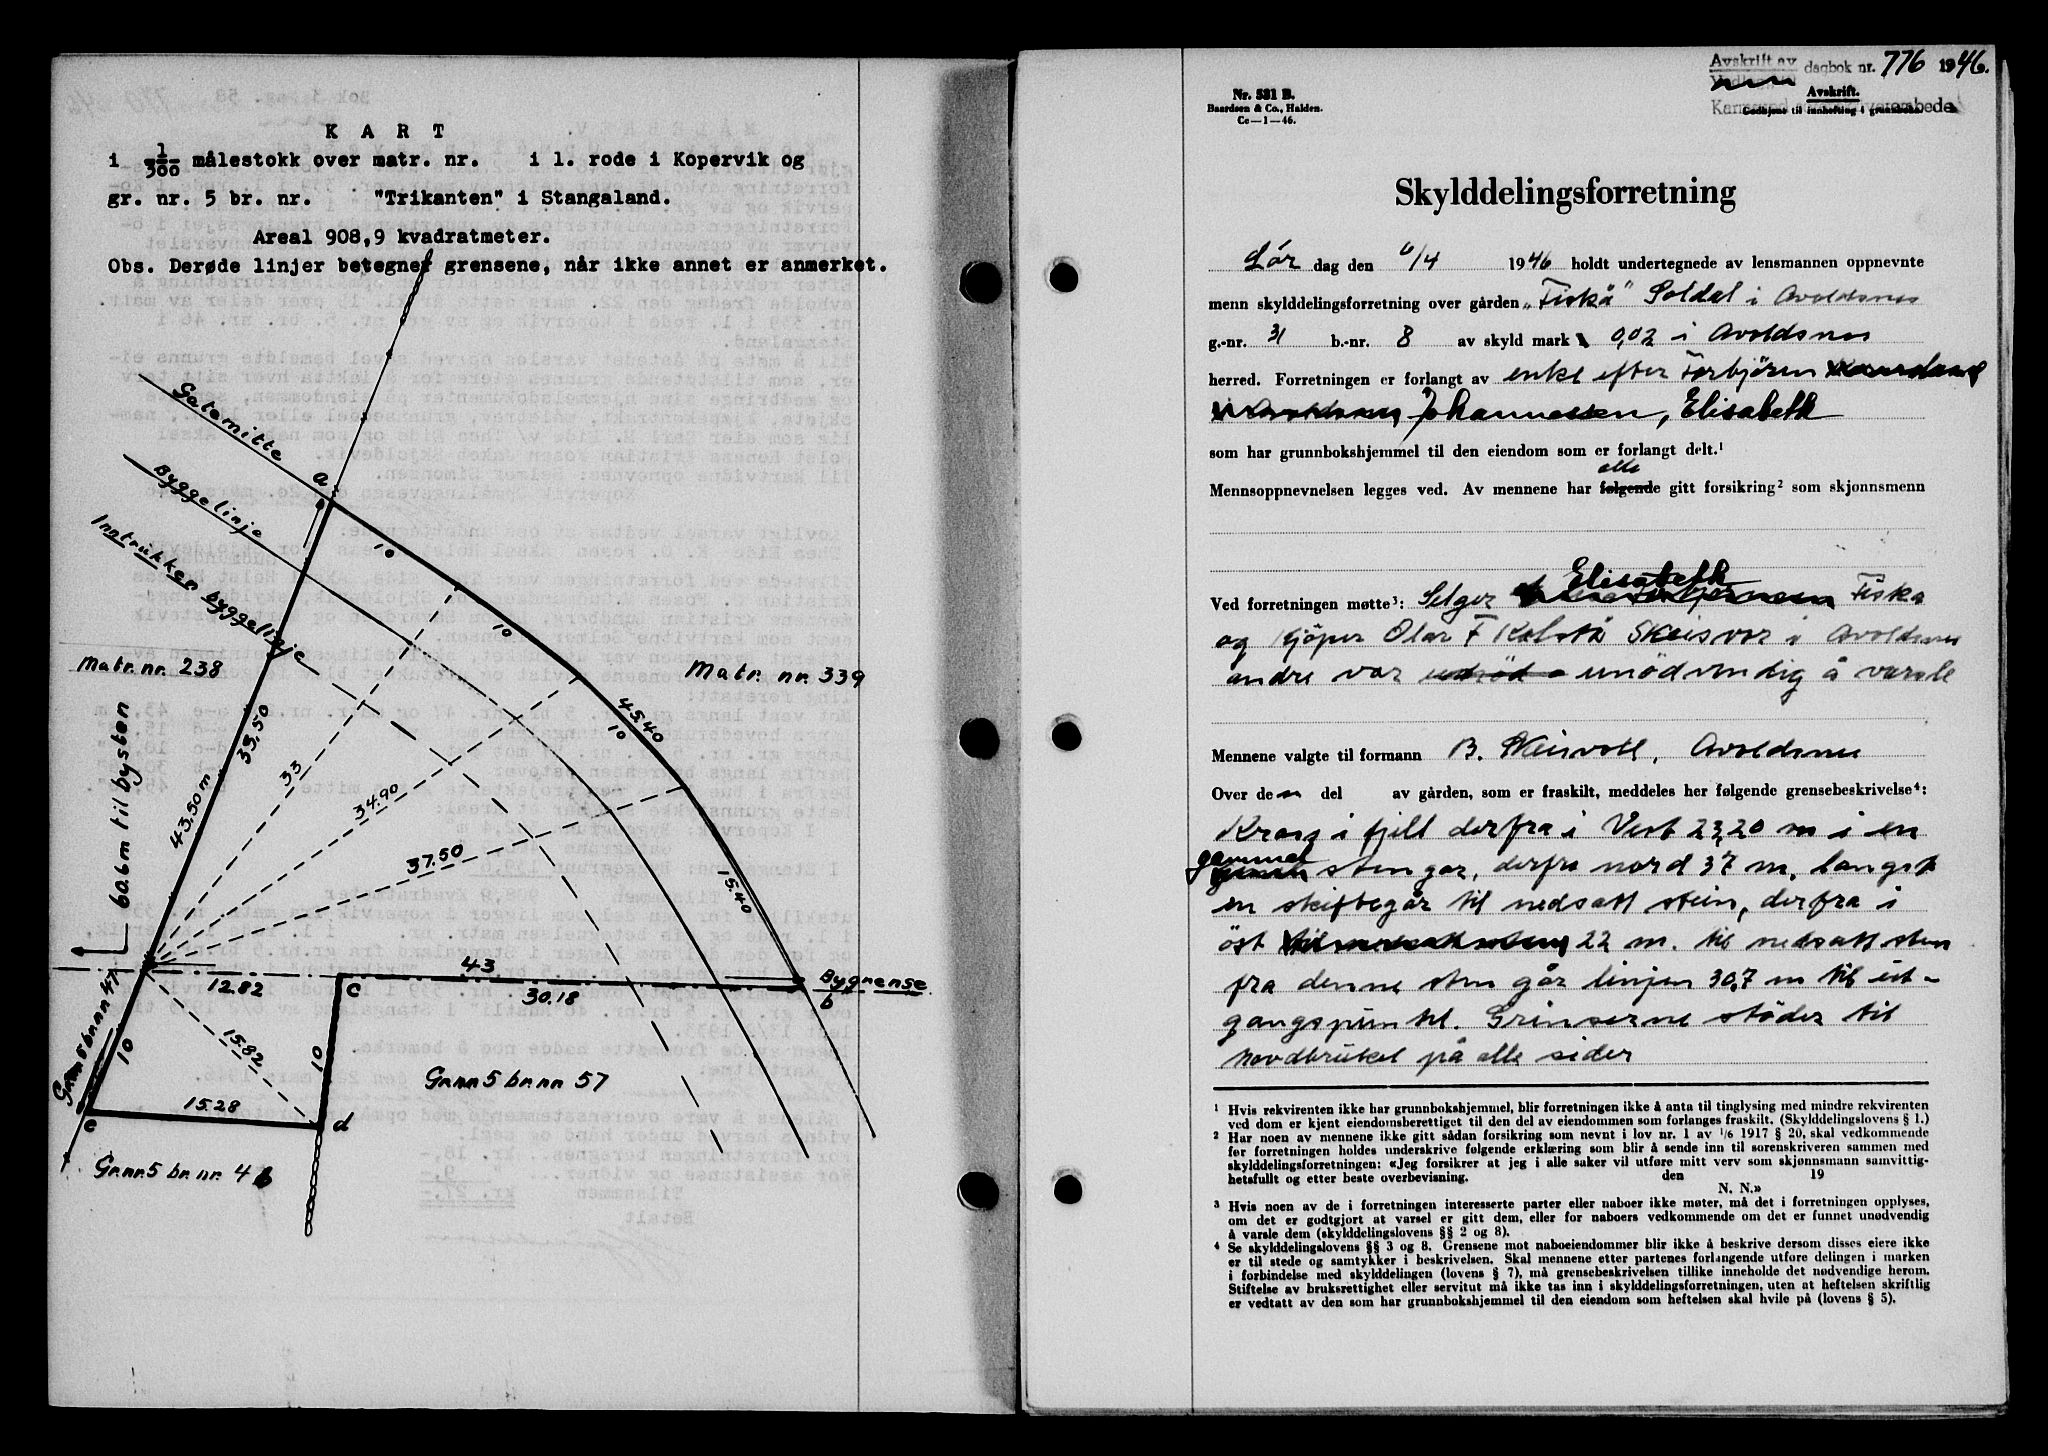 K A R T
i 1/300 målestokk over matr. nr. i l. rode i Kopervik og
gr. nr. 5 br. nr. "Trikanten" i Stangaland.
Areal 908,9 kvadratmeter.
Obs. Derøde linjer betegner grensene, når ikke annet er anmerket.
Gatemitte
Byggelinje
Inntrukken byggelinje
a
10
10
10
45.40
15.40
Matr. nr. 238
Matr. nr. 339
33.50
43.50 m
33
34.90
37.50
60.6 m til bysten
43
12.82
c
30.18
Bygrense
b
Gr.nr. 5 br.nr. 47
10
15.82
10
Gr.nr 5 br.nr 57
15.28
e
d
Gr.nr 5 br. nr. 46
Avskrift av dagbok nr. 776 1946.
Nr. 531 B.
Baardsen & Co., Halden.
Ce—1—46.
Avskrift.
Godkjent til innhefting i grunnboka.
Skylddelingsforretning
Lör dag den 6/4 1946 holdt undertegnede av lensmannen oppnevnte
menn skylddelingsforretning over gården "Fiskå" Soldal i Avoldsnes
g.-nr. 31 b.-nr. 8 av skyld mark 0,02 i Avoldsnes
herred. Forretningen er forlangt av enke efter Torbjören
Johannessen, Elisabeth
som har grunnbokshjemmel til den eiendom som er forlangt delt.¹
alle
Mennsoppnevnelsen legges ved. Av mennene har følgende gitt forsikring² som skjønnsmenn
Elisabeth
Ved forretningen møtte³: Selger Fiska
og Kjöper Olav F Kolstö Skeisvor i Avoldsnes
andre var unödvendig å varsle
Mennene valgte til formann B. Skeisvoll, Avoldsnes
Over den del av gården, som er fraskilt, meddeles her følgende grensebeskrivelse⁴:
Kross i fjell derfra i Vest 23,20 m i en
gammel
stengar, derfra nord 37 m, langst
en skiftegår til nedsatt stein, derfra i
öst 22 m. til nedsatt sten
fra denne sten går linjen 30,7 m til ut-
gangspunktet. Grinserne stöder til
hovdbruket på alle sider
¹ Hvis rekvirenten ikke har grunnbokshjemmel, blir forretningen ikke å anta til tinglysing med mindre rekvirenten
ved dom er kjent eiendomsberettiget til den del av eiendommen som forlanges fraskilt. (Skylddelingslovens § 1.)
² Har noen av mennene ikke gitt sådan forsikring som nevnt i lov nr. 1 av 1/6 1917 § 20, skal vedkommende
før forretningen holdes underskrive følgende erklæring som blir å sende inn til sorenskriveren sammen med
skylddelingsforretningen: «Jeg forsikrer at jeg i alle saker vil utføre mitt verv som skjønnsmann samvittig-
hetsfullt og etter beste overbevisning. den 19
N. N.»
³ Hvis noen av de i forretningen interesserte parter eller naboer ikke møter, må det i forretningen opplyses,
om det er godtgjort at varsel er gitt dem, eller for naboers vedkommende om det er funnet unødvendig
å varsle dem (skylddelingslovens §§ 2 og 8).
⁴ Se skylddelingslovens §§ 3 og 8. Grensene mot naboeiendommer blir ikke å beskrive dersom disses eiere ikke
er til stede og samtykker i beskrivelsen. Skal mennene etter partenes forlangende utføre delingen i marken
i forbindelse med skylddelingen (lovens § 7), må grensebeskrivelsen tillike inneholde det nødvendige herom.
Stiftelse av bruksrettighet eller servitut må ikke tas inn i skylddelingsforretningen, uten at heftelsen skriftlig
er vedtatt av den som har grunnbokshjemmel til den eiendom som heftelsen skal hvile på (lovens § 5).